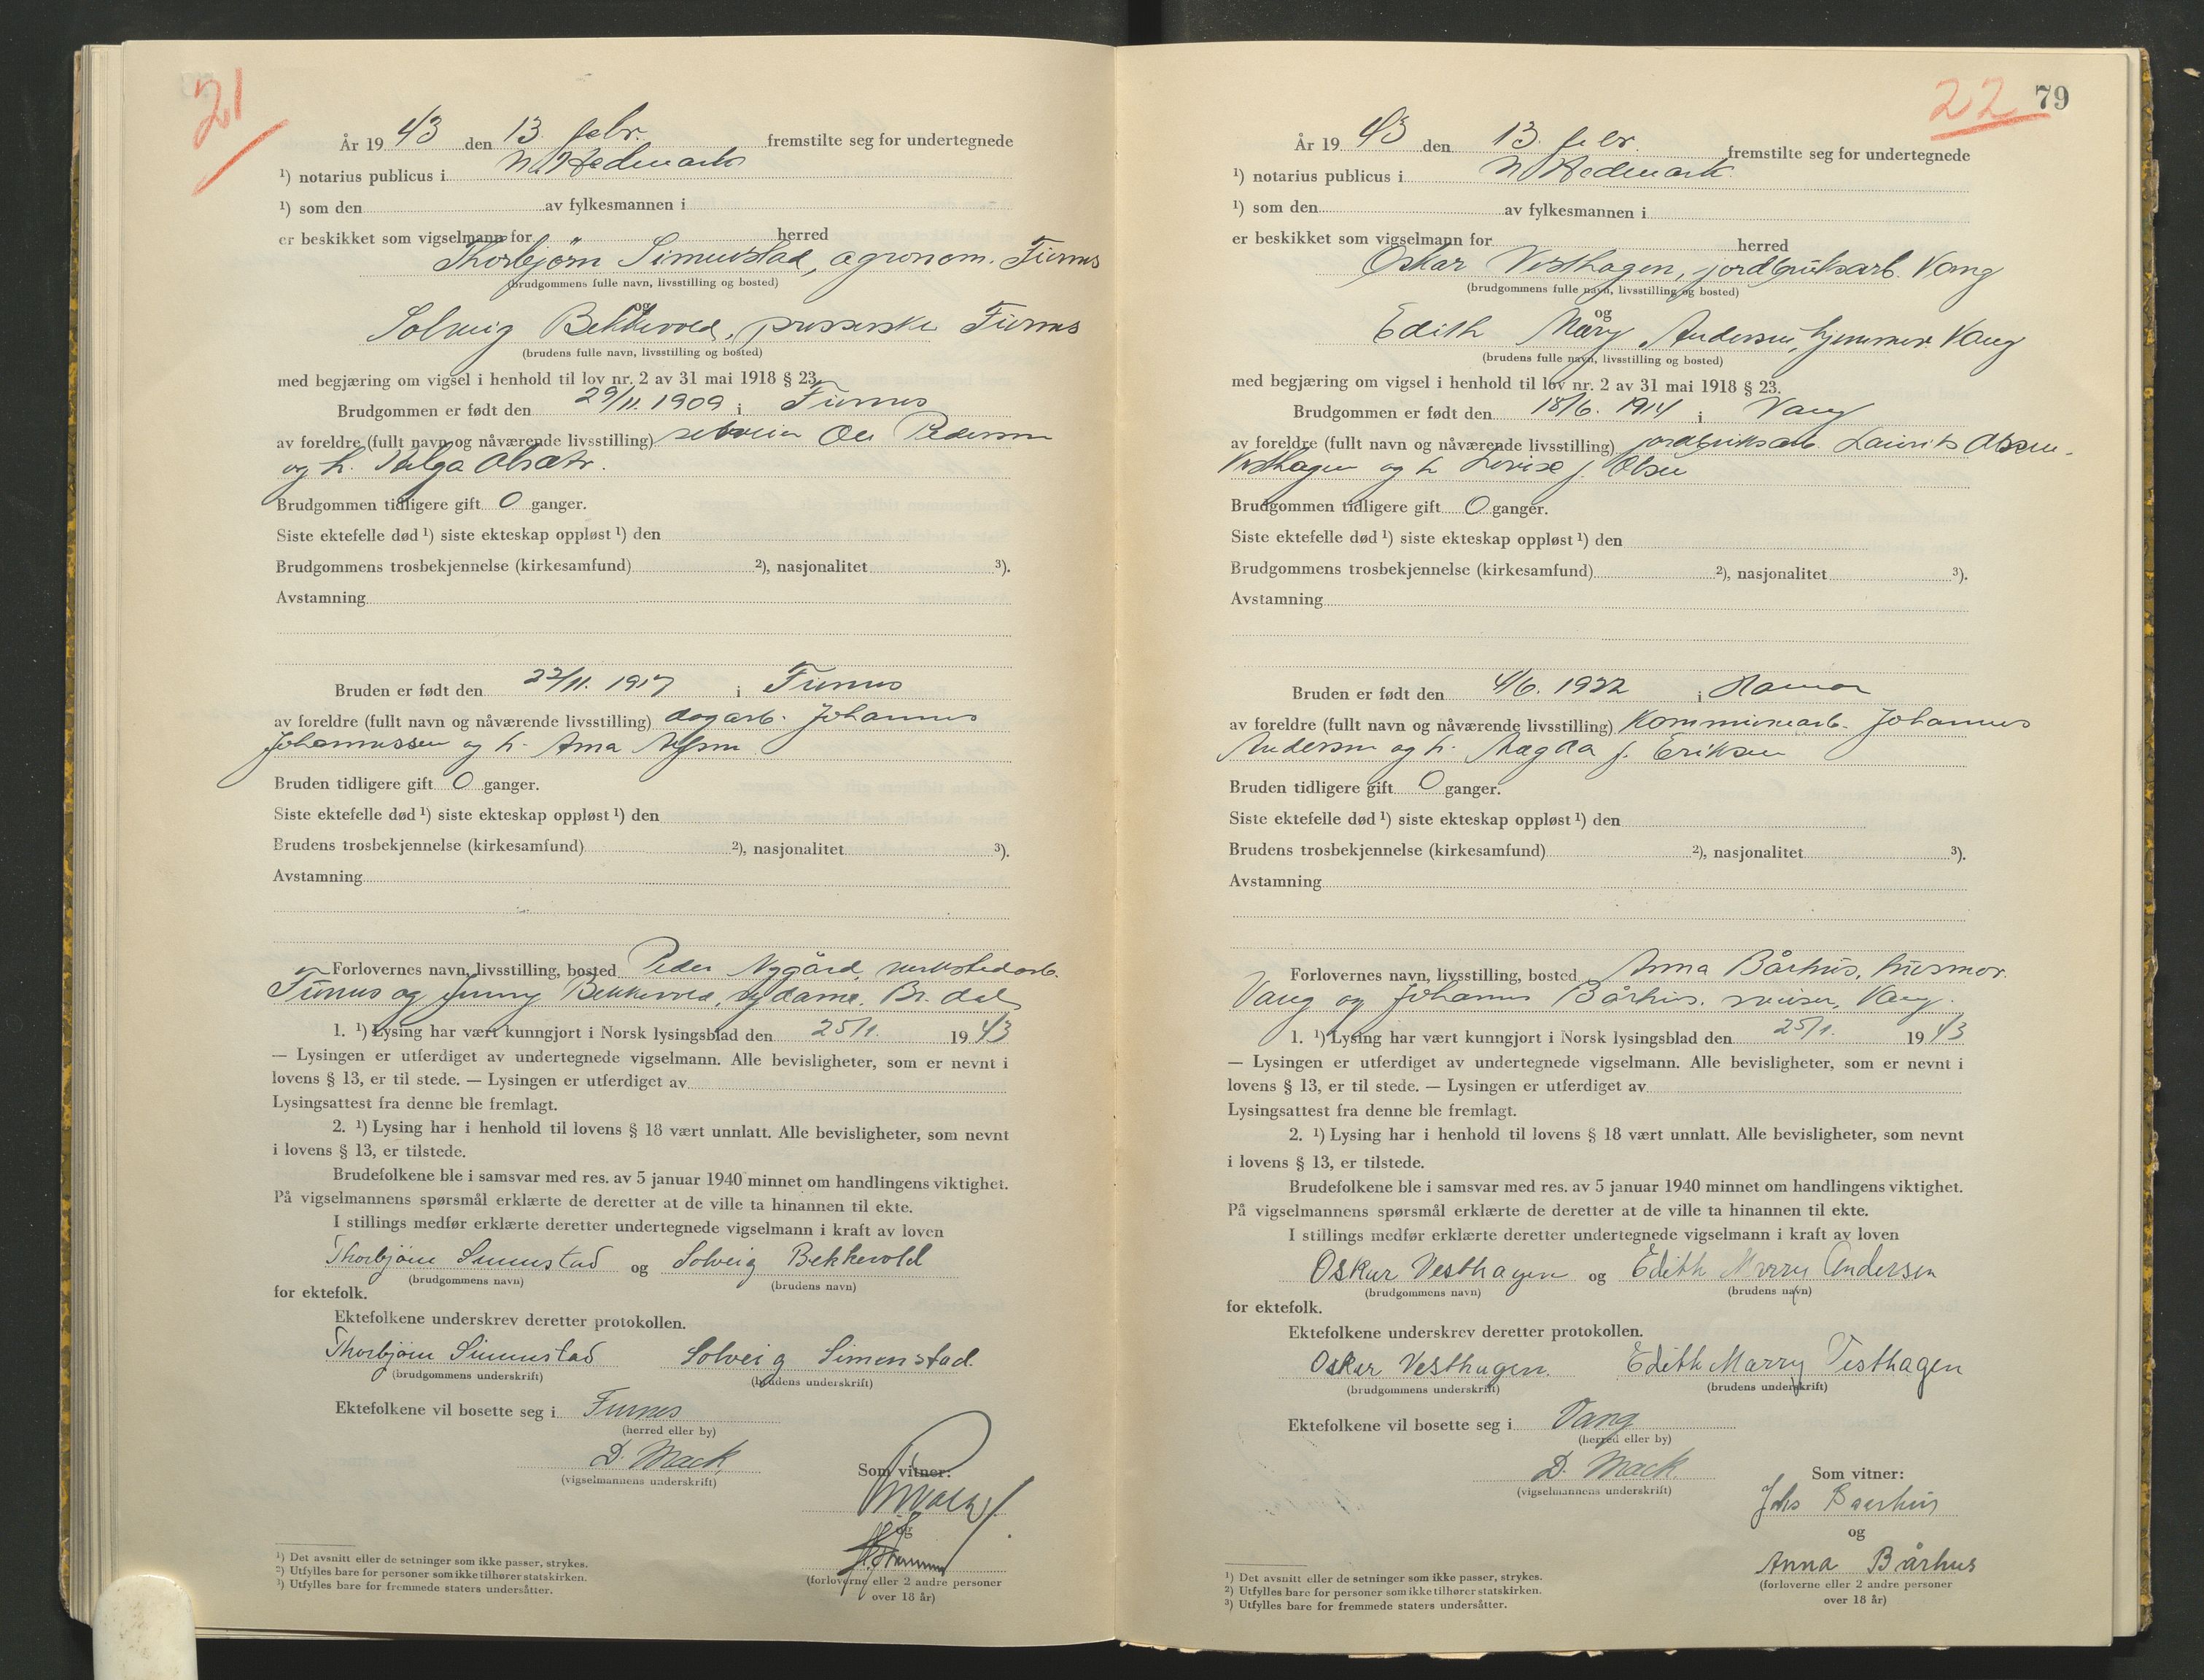 21
År 1943 den 13. febr. fremstilte seg for undertegnede
¹) notarius publicus i N. Hedmark
¹) som den av fylkesmannen i
er beskikket som vigselmann for herred
Thorbjörn Simenstad, agronom. Furnes
(brudgommens fulle navn, livsstilling og bosted)
og
Solveig Bekkevold, Furnes
(brudens fulle navn, livsstilling og bosted)
med begjæring om vigsel i henhold til lov nr. 2 av 31 mai 1918 § 23.
Brudgommen er født den 29/11. 1909 i Furnes
av foreldre (fullt navn og nåværende livsstilling) Ole Pedersen
og h. Helga Olsdtr.
Brudgommen tidligere gift 0 ganger.
Siste ektefelle død ¹) siste ekteskap oppløst ¹) den
Brudgommens trosbekjennelse (kirkesamfund) ²), nasjonalitet ³).
Avstamning
Bruden er født den 22/11. 1917 i Furnes
av foreldre (fullt navn og nåværende livsstilling) dagarb. Johannes
Johannessen og h. Anna
Bruden tidligere gift 0 ganger.
Siste ektefelle død ¹) siste ekteskap oppløst ¹) den
Brudens trosbekjennelse (kirkesamfund) ²), nasjonalitet ³).
Avstamning
Forlovernes navn, livsstilling, bosted Peder Nygård, verkstedarb.
Furnes og Jenny Bekkevold, sydame. Br. dal
1. ¹) Lysing har vært kunngjort i Norsk lysingsblad den 25/1. 1943
— Lysingen er utferdiget av undertegnede vigselmann. Alle bevisligheter, som er nevnt i
lovens § 13, er til stede. — Lysingen er utferdiget av
Lysingsattest fra denne ble fremlagt.
2. ¹) Lysing har i henhold til lovens § 18 vært unnlatt. Alle bevisligheter, som nevnt
i lovens § 13, er tilstede.
Brudefolkene ble i samsvar med res. av 5 januar 1940 minnet om handlingens viktighet.
På vigselmannens spørsmål erklærte de deretter at de ville ta hinannen til ekte.
I stillings medfør erklærte deretter undertegnede vigselmann i kraft av loven
Thorbjörn Simenstad og Solveig Bekkevold
(brudgommens navn) (brudens navn)
for ektefolk.
Ektefolkene underskrev deretter protokollen.
Thorbjörn Simenstad Solveig Simenstad.
(brudgommens underskrift) (brudens underskrift)
Ektefolkene vil bosette seg i Furnes
(herred eller by)
D. Mack.
(vigselmannens underskrift)
Som vitner:
og
(forloverne eller 2 andre personer
over 18 år)
¹) Det avsnitt eller de setninger som ikke passer, strykes.
²) Utfylles bare for personer som ikke tilhører statskirken.
³) Utfylles bare for fremmede staters undersåtter.
22 79
År 1943 den 13. febr. fremstilte seg for undertegnede
¹) notarius publicus i N. Hedmark
¹) som den av fylkesmannen i
er beskikket som vigselmann for herred
Oskar Vesthagen, jordbruksarb. Vang
(brudgommens fulle navn, livsstilling og bosted)
og
Edith Mary Andersen, hjemmev. Vang
(brudens fulle navn, livsstilling og bosted)
med begjæring om vigsel i henhold til lov nr. 2 av 31 mai 1918 § 23.
Brudgommen er født den 18/6. 1914 i Vang
av foreldre (fullt navn og nåværende livsstilling) jordbruksarb. Laurits Olsen
Vesthagen og h. Lovise f. Olsen
Brudgommen tidligere gift 0 ganger.
Siste ektefelle død ¹) siste ekteskap oppløst ¹) den
Brudgommens trosbekjennelse (kirkesamfund) ²), nasjonalitet ³).
Avstamning
Bruden er født den 4/6. 1922 i Hamar
av foreldre (fullt navn og nåværende livsstilling) Kommunearb. Johannes
Andersen og h. Magda f. Eriksen
Bruden tidligere gift 0 ganger.
Siste ektefelle død ¹) siste ekteskap oppløst ¹) den
Brudens trosbekjennelse (kirkesamfund) ²), nasjonalitet ³).
Avstamning
Forlovernes navn, livsstilling, bosted Anna Bårhus, husmor.
Vang og Johannes Bårhus, sveiser, Vang.
1. ¹) Lysing har vært kunngjort i Norsk lysingsblad den 25/1. 1943
— Lysingen er utferdiget av undertegnede vigselmann. Alle bevisligheter, som er nevnt i
lovens § 13, er til stede. — Lysingen er utferdiget av
Lysingsattest fra denne ble fremlagt.
2. ¹) Lysing har i henhold til lovens § 18 vært unnlatt. Alle bevisligheter, som nevnt
i lovens § 13, er tilstede.
Brudefolkene ble i samsvar med res. av 5 januar 1940 minnet om handlingens viktighet.
På vigselmannens spørsmål erklærte de deretter at de ville ta hinannen til ekte.
I stillings medfør erklærte deretter undertegnede vigselmann i kraft av loven
Oskar Vesthagen og Edith Marry Andersen
(brudgommens navn) (brudens navn)
for ektefolk.
Ektefolkene underskrev deretter protokollen.
Oskar Vesthagen. Edith Marry Vesthagen
(brudgommens underskrift) (brudens underskrift)
Ektefolkene vil bosette seg i Vang
(herred eller by)
D. Mack.
(vigselmannens underskrift)
Som vitner:
Johs Baarhus
og
Anna Bårhus
(forloverne eller 2 andre personer
over 18 år)
¹) Det avsnitt eller de setninger som ikke passer, strykes.
²) Utfylles bare for personer som ikke tilhører statskirken.
³) Utfylles bare for fremmede staters undersåtter.